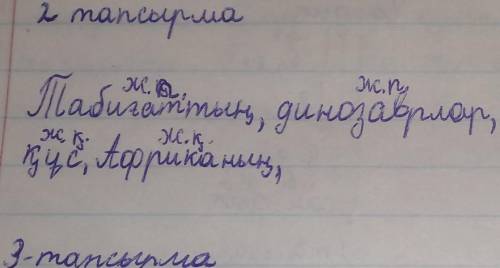 2 тапсырма
ж.п. ж.п
Табиғаттың, динозаврлар,
ж қ. ж.қ.
құс, Африканың,
3-тапсырма